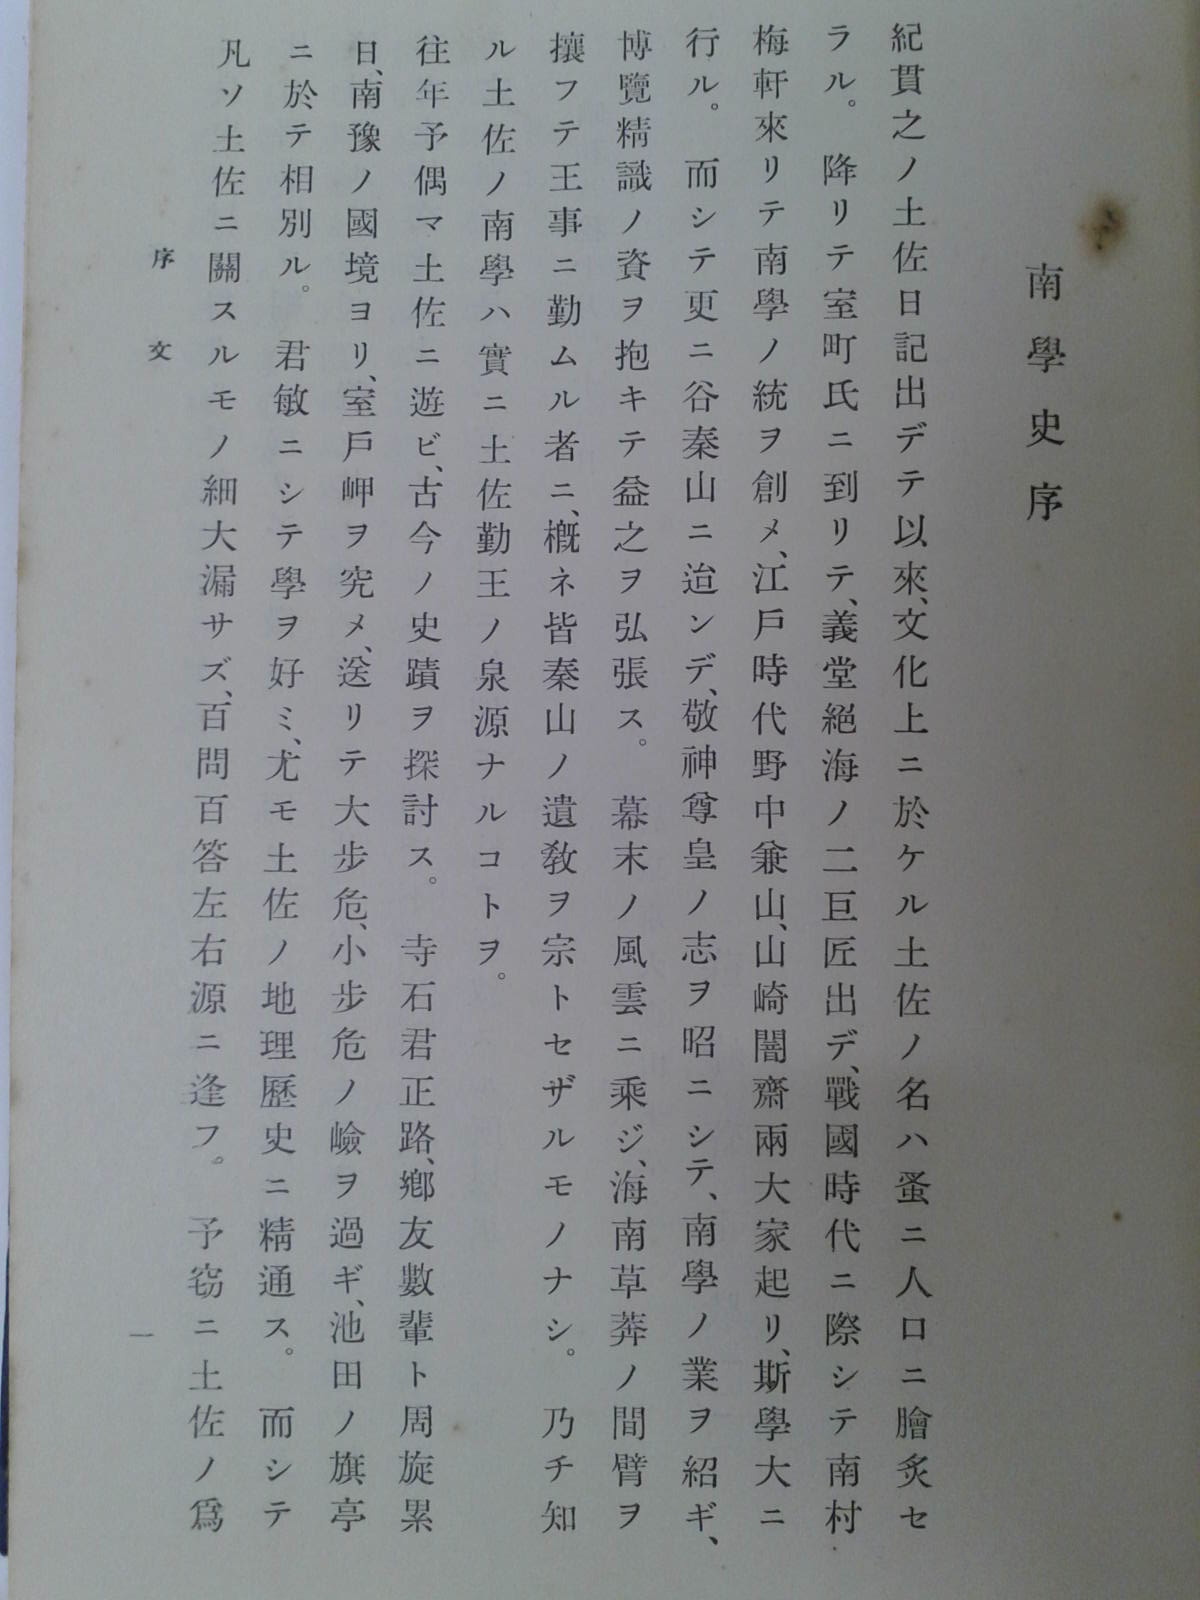 南學史序
紀貫之ノ土佐日記出デテ以來、文化上ニ於ケル土佐ノ名ハ蚤ニ人口ニ膾炙セ
ラル。降リテ室町氏ニ到リテ、義堂絕海ノ二巨匠出デ、戰國時代ニ際シテ南村
梅軒來リテ南學ノ統ヲ創メ、江戶時代野中兼山、山崎闇齋兩大家起リ、斯學大ニ
行ル。而シテ更ニ谷秦山ニ迨ンデ、敬神尊皇ノ志ヲ昭ニシテ、南學ノ業ヲ紹ギ、
博覽精識ノ資ヲ抱キテ益之ヲ弘張ス。幕末ノ風雲ニ乘ジ、海南草莽ノ間臂ヲ
攘フテ王事ニ勤ムル者ニ、槪ネ皆秦山ノ遺敎ヲ宗トセザルモノナシ。乃チ知
ル土佐ノ南學ハ實ニ土佐勤王ノ泉源ナルコトヲ。
往年予偶マ土佐ニ遊ビ、古今ノ史蹟ヲ探討ス。寺石君正路、鄕友數輩ト周旋累
日、南豫ノ國境ヨリ、室戶岬ヲ究メ、送リテ大步危、小步危ノ嶮ヲ過ギ、池田ノ旗亭
ニ於テ相別ル。君敏ニシテ學ヲ好ミ、尤モ土佐ノ地理歷史ニ精通ス。而シテ
凡ソ土佐ニ關スルモノ細大漏サズ、百問百答左右源ニ逢フ。予窃ニ土佐ノ爲
序文
一